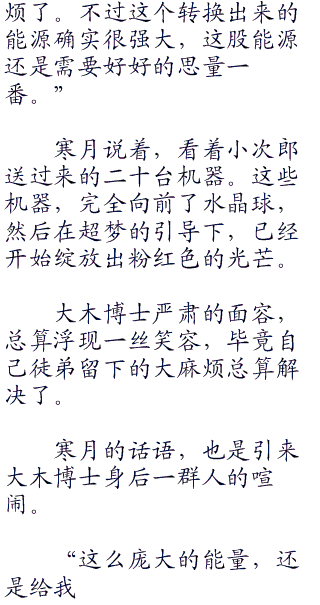 烦了。不过这个转换出来的
能源确实很强大，这股能源
还是需要好好的思量一
番。”
寒月说着，看着小次郎
送过来的二十台机器。这些
机器，完全向前了水晶球，
然后在超梦的引导下，已经
开始绽放出粉红色的光芒。
大木博士严肃的面容，
总算浮现一丝笑容，毕竟自
己徒弟留下的大麻烦总算解
决了。
寒月的话语，也是引来
大木博士身后一群人的喧
闹。
“这么庞大的能量，还
是给我